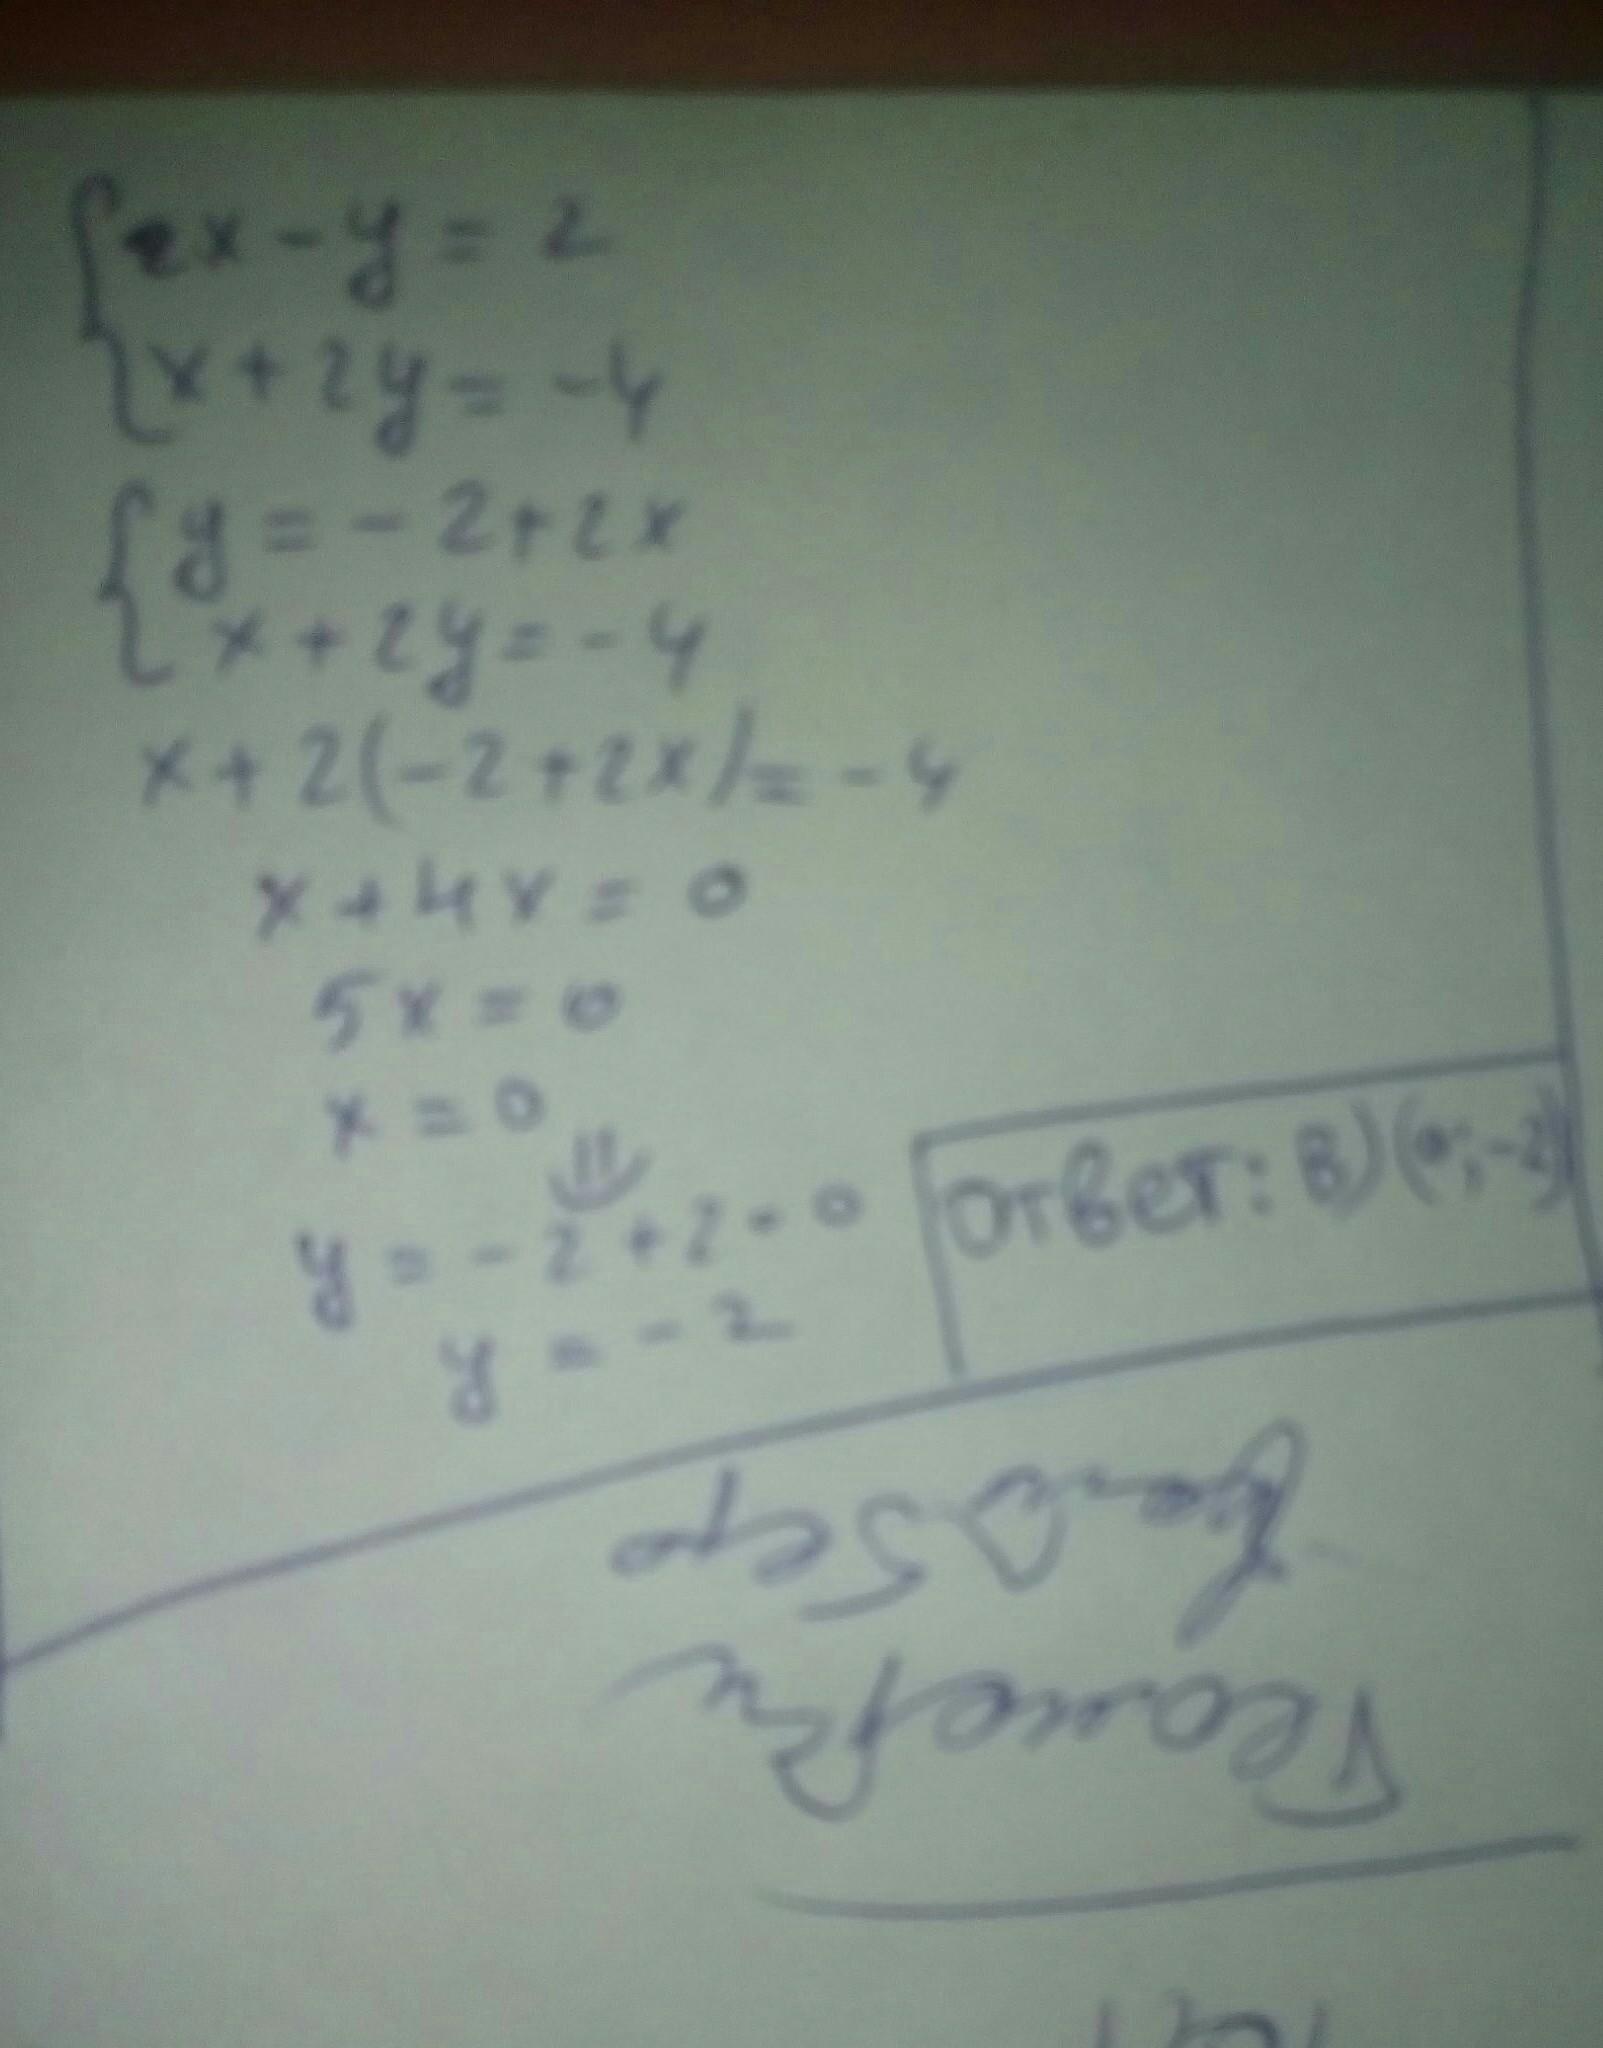 2x - y = 2
x + 2y = -4
y = -2 + 2x
x + 2y = -4
x + 2(-2 + 2x) = -4
x + 4x = 0
5x = 0
x = 0
⇓
y = -2 + 2 · 0
y = -2
ответ: в) (0; -2)